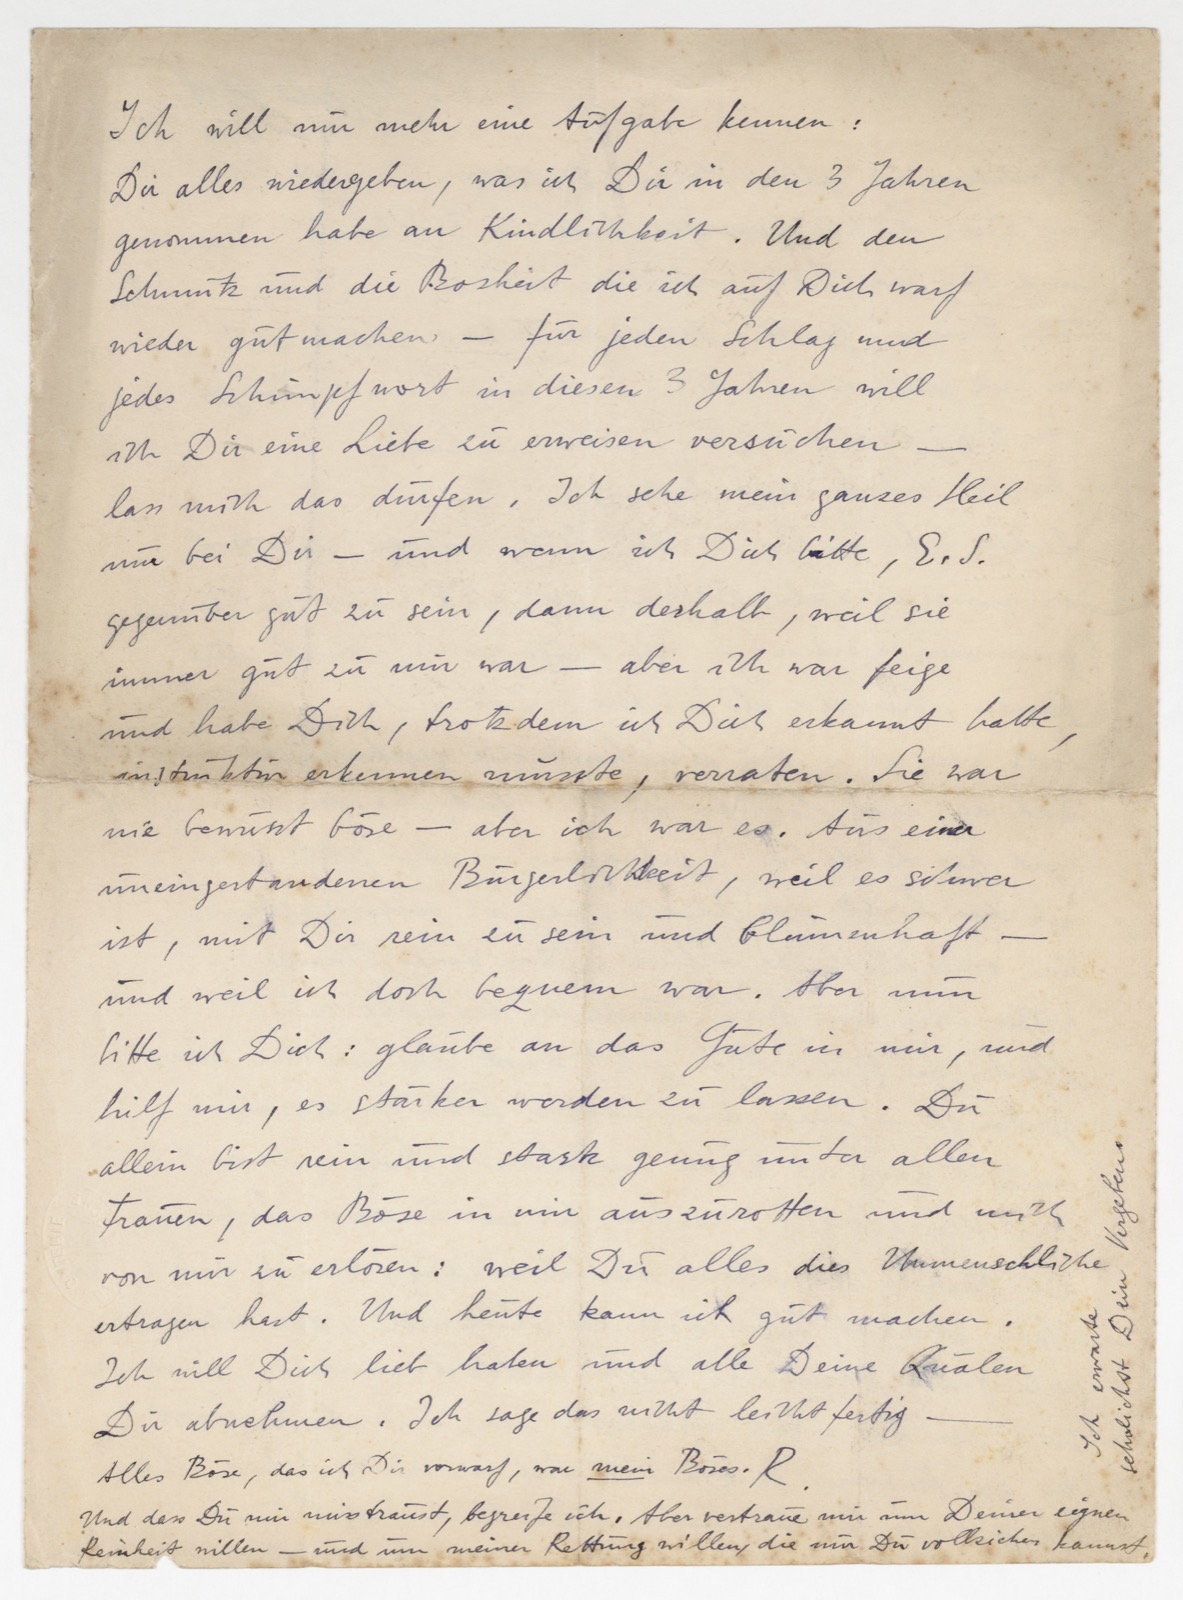 Ich will nur mehr eine Aufgabe kennen:
Dir alles wiedergeben, was ich Dir in den 3 Jahren
genommen habe an Kindlichkeit. Und den
Schmutz und die Bosheit die ich auf Dich warf
wieder gutmachen – für jeden Schlag und
jedes Schimpfwort in diesen 3 Jahren will
ich Dir eine Liebe zu erweisen versuchen –
lass mich das dürfen. Ich sehe mein ganzes Heil
nur bei Dir – und wenn ich Dich bitte, E. S.
gegenüber gut zu sein, dann deshalb, weil sie
immer gut zu mir war – aber ich war feige
und habe Dich, trotzdem ich Dich erkannt hatte,
erkennen musste, verraten. Sie war
nie bewusst böse – aber ich war es. Aus einer
uneingestandenen Bürgerlichkeit, weil es schwer
ist, mit Dir rein zu sein und blumenhaft –
und weil ich doch bequem war. Aber nun
bitte ich Dich: glaube an das Gute in mir, und
hilf mir, es stärker werden zu lassen. Du
allein bist rein und stark genug unter allen
Frauen, das Böse in mir auszurotten und mich
von mir zu erlösen: weil Du alles dies Unmenschliche
ertragen hast. Und heute kann ich gut machen.
Ich will Dich lieb haben und alle Deine Qualen
Dir abnehmen. Ich sage das nicht leichtfertig –
Alles Böse, das ich Dir vorwarf, war mein Böses. R.
Und dass Du mir misstraust, begreife ich. Aber vertraue mir um Deiner eignen
Reinheit willen – und um meiner Rettung willen, die nur Du vollziehen kannst.
Ich erwarte
sehnlichst Dein Vergeben